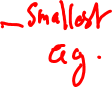 _smallest
ag.